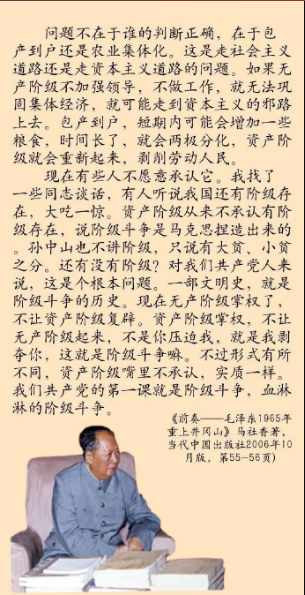 问题不在于谁的判断正确，在于包
产到户还是农业集体化。这是走社会主义
道路还是走资本主义道路的问题。如果无
产阶级不加强领导，不做工作，就无法巩
周集体经济，就可能走到资本主义的邪路
上去。包产到户，短期内可能会增加一些
粮食，时间长了，就会两极分化，资产阶
级就会重新起来，剥削劳动人民。
现在有些人不愿意承认它。我找了
一些同志谈话，有人听说我国还有阶级存
在，大吃一惊。资产阶级从来不承认有阶
级存在，说阶级斗争是马克思捏造出来的
。孙中山也不讲阶级，只说有大贫、小贫
之分。还有没有阶级？对我们共产党人来
说，这是个根本问题。一部文明史，就是
阶级斗争的历史。现在无产阶级掌权了，
不让资产阶级复辟。资产阶级掌权，不让
无产阶级起来，不是你压迫我，就是我剥
夺你，这就是阶级斗争嘛。不过形式有所
不同，资产阶级嘴里不承认，实质一样。
我们共产党的第一课就是阶级斗争，血淋
淋的阶级斗争。
《前奏——毛泽东1965年
重上井冈山》马社香著，
当代中国出版社2006年10
月版，第55—56页)